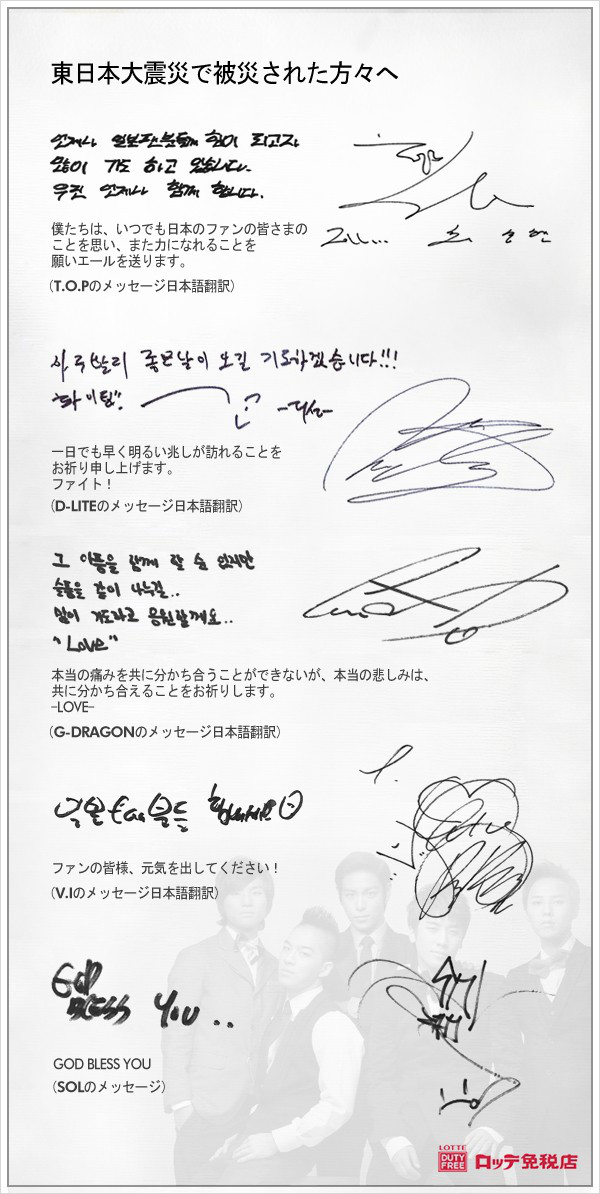 東日本大震災で被災された方々へ
언제나 일본팬분들께 힘이 되고자
많이 기도 하고 있습니다.
우린 언제나 함께 합니다.
僕たちは、いつでも日本のファンの皆さまの
ことを思い、また力になれることを
願いエールを送ります。
(T.O.Pのメッセージ日本語翻訳)
하루빨리 좋은날이 오길 기도하겠습니다!!!
"화이팅".
-대성-
一日でも早く明るい兆しが訪れることを
お祈り申し上げます。
ファイト！
(D-LITEのメッセージ日本語翻訳)
그 아픔을 함께 할 순 없지만
슬픔을 같이 나누길..
많이 기도하고 응원할께요..
"Love"
本当の痛みを共に分かち合うことができないが、本当の悲しみは、
共に分かち合えることをお祈りします。
-LOVE-
(G-DRAGONのメッセージ日本語翻訳)
일본 fan분들 힘내세요
ファンの皆様、元気を出してください！
(V.Iのメッセージ日本語翻訳)
GOD
BLESS YOU..
GOD BLESS YOU
(SOLのメッセージ)
LOTTE
DUTY
FREE
ロッテ免税店